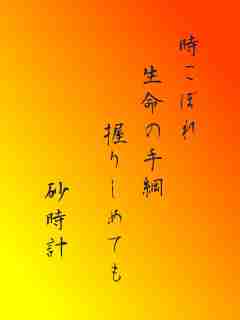 時こぼれ
生命の手綱
握りしめても
砂時計